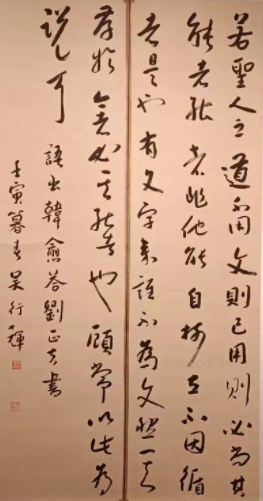 若聖人之道不用文則已用則必尚其
能者能者非他能自樹立不因循
者是也有文字來誰不為文然其
存於今者必其能者也顧常以此為
說耳
語出韓愈答劉正夫書
壬寅暮春吳行輝